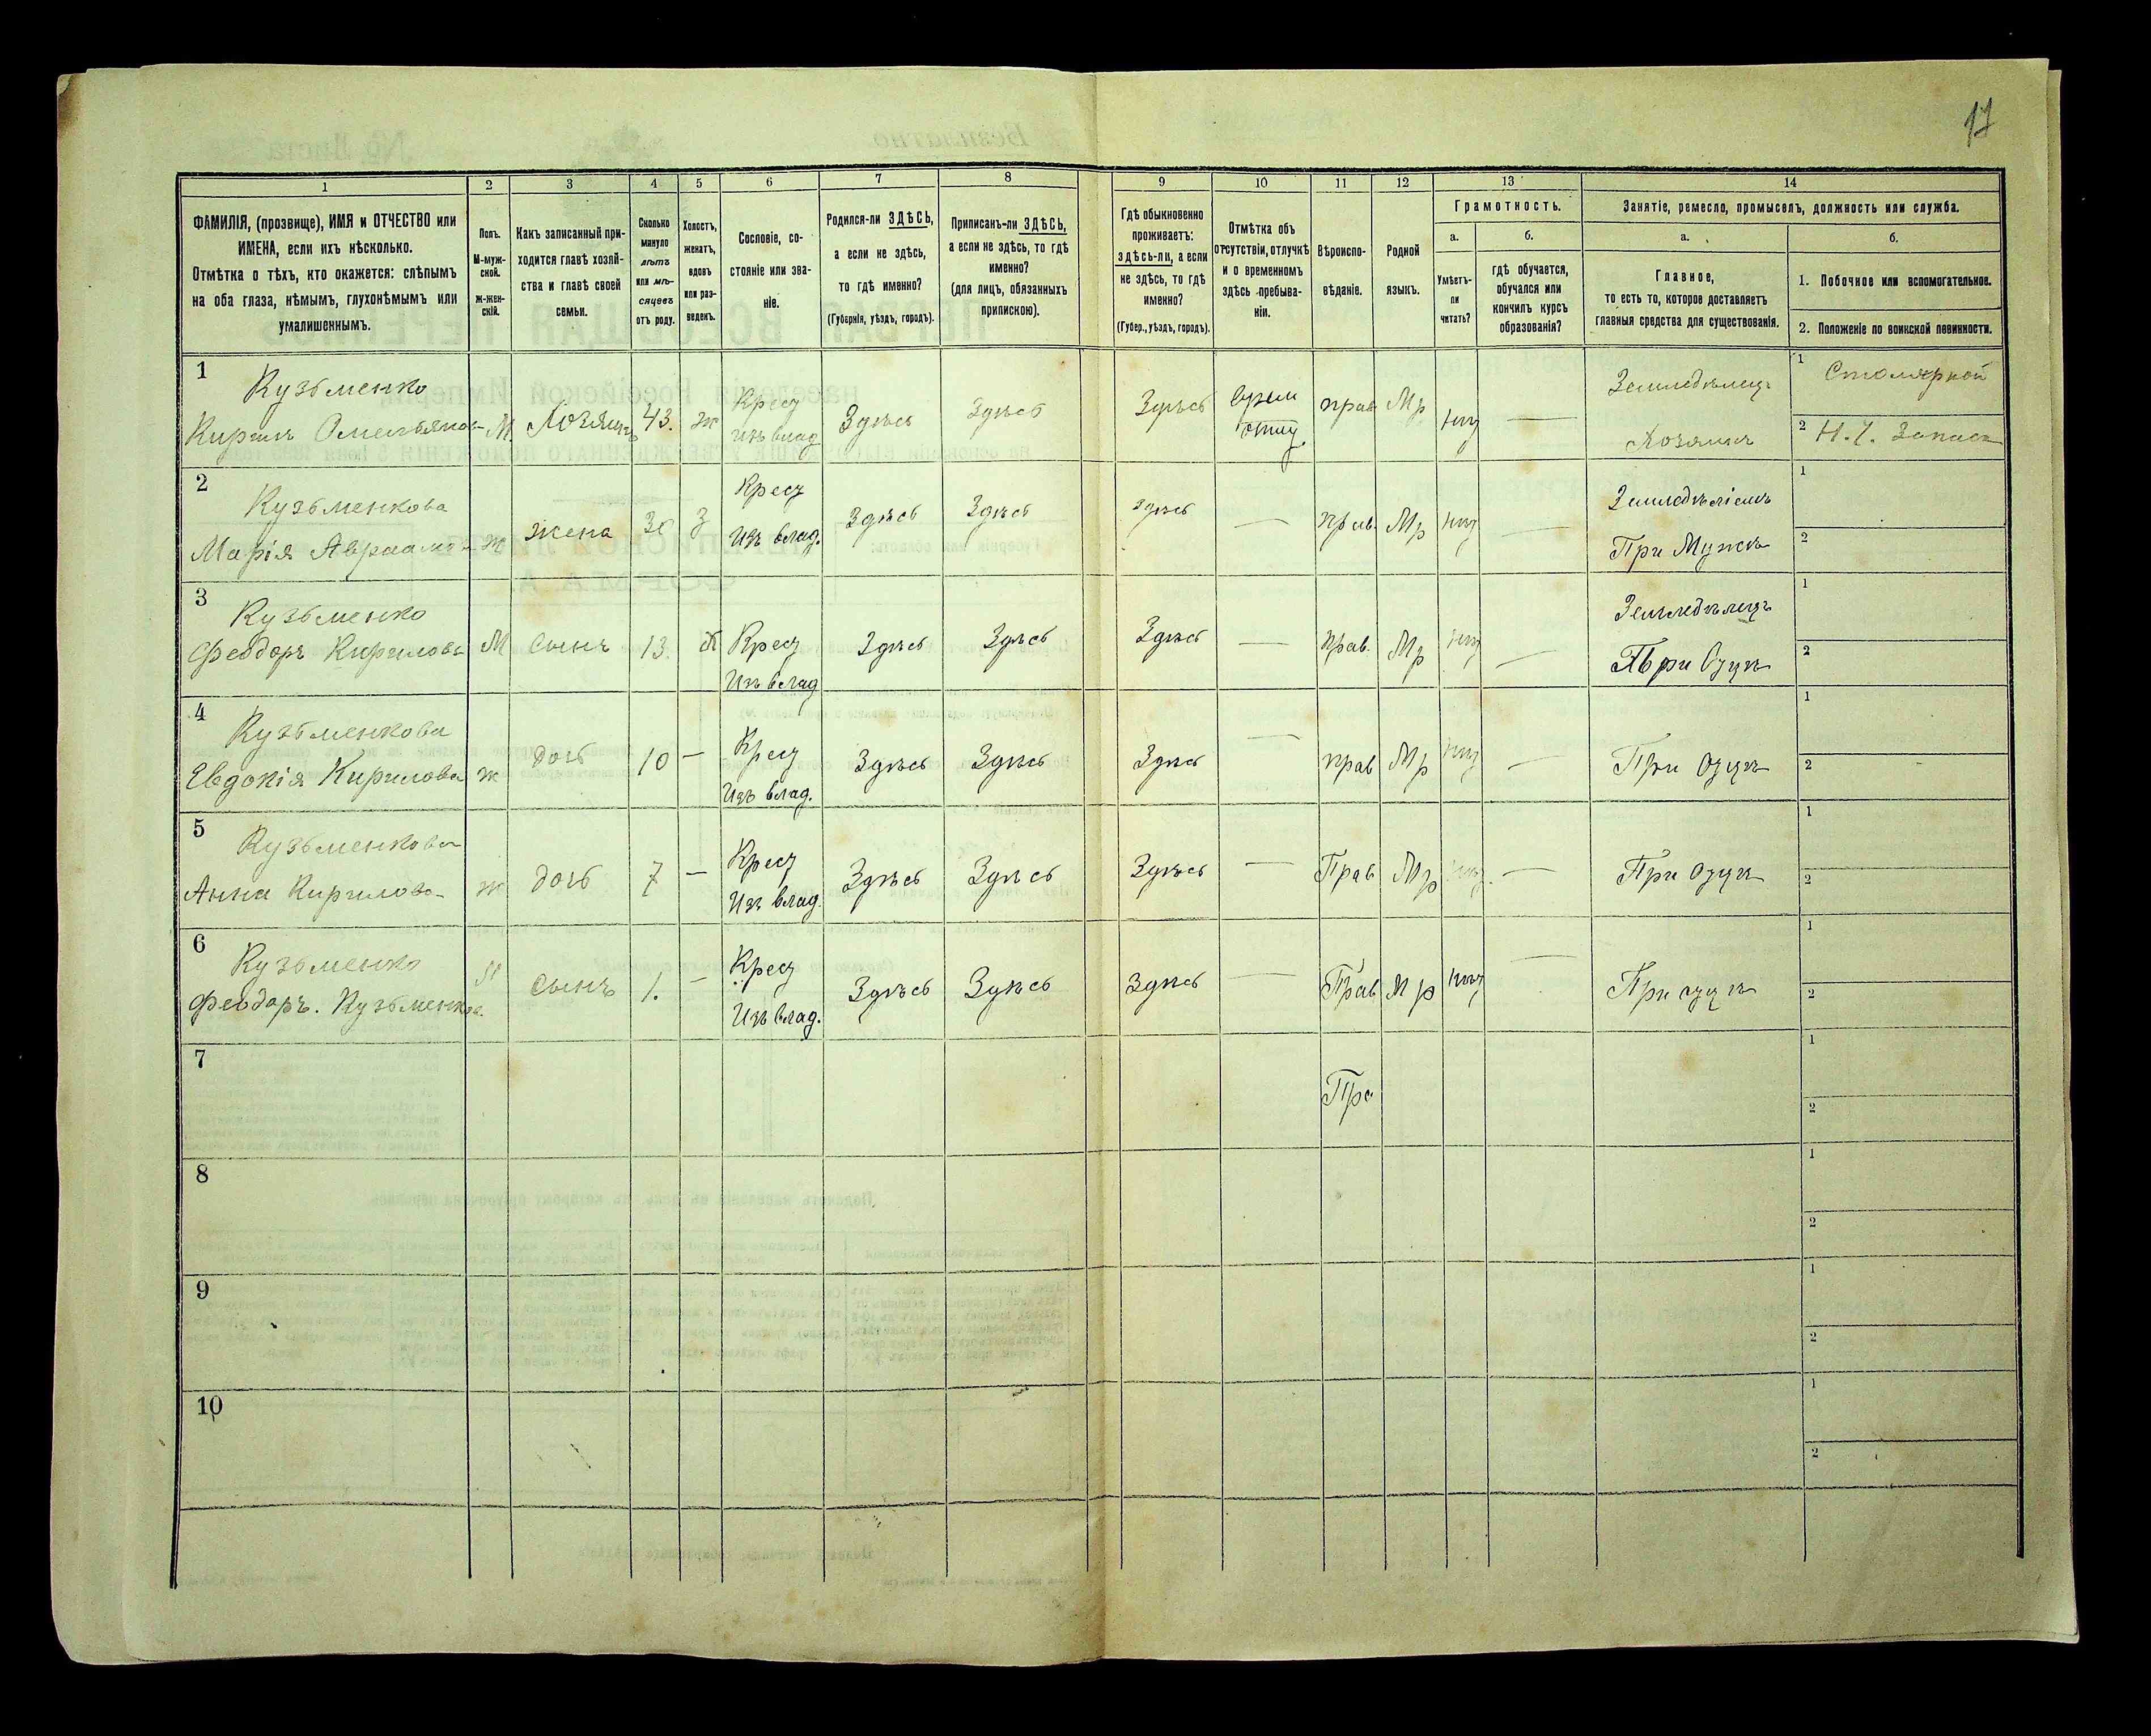 17
1 2 3 4 5 6 7 8 9 10 11 12 13 14
ФАМИЛІЯ, (прозвище), ИМЯ и ОТЧЕСТВО или
ИМЕНА, если ихъ нѣсколько.
Отмѣтка о тѣхъ, кто окажется: слѣпымъ
на оба глаза, нѣмымъ, глухонѣмымъ или
умалишеннымъ.
Полъ.
М-муж-
ской.
Ж-жен-
скій.
Какъ записанный при-
ходится главѣ хозяй-
ства и главѣ своей
семьи.
Сколько
минуло
лѣтъ
или мѣ-
сяцевъ
отъ роду.
Холостъ,
женатъ,
вдовъ
или раз-
веденъ.
Сословіе, со-
стояніе или зва-
ніе.
Родился-ли ЗДѢСЬ,
а если не здѣсь,
то гдѣ именно?
(Губернія, уѣздъ, городъ).
Приписанъ-ли ЗДѢСЬ,
а если не здѣсь, то гдѣ
именно?
(для лицъ, обязанныхъ
припискою).
Гдѣ обыкновенно
проживаетъ:
здѣсь-ли, а если
не здѣсь, то гдѣ
именно?
(Губер., уѣздъ, городъ).
Отмѣтка объ
отсутствіи, отлучкѣ
и о временномъ
здѣсь пребыва-
ніи.
Вѣроиспо-
вѣданіе.
Родной
языкъ.
Грамотность.
а.
Умѣетъ-
ли
читать?
б.
гдѣ обучается,
обучался или
кончилъ курсъ
образованія?
Занятіе, ремесло, промыселъ, должность или служба.
а.
Главное,
то есть то, которое доставляетъ
главныя средства для существованія.
б.
1. Побочное или вспомогательное.
2. Положеніе по воинской повинности.
1 Кузьменко Крест Врем Земледѣлецъ 1 Столярной
Кирилъ Омельянов М. Хозяинъ 43. ж изъ влад Здѣсь Здѣсь Здѣсь отлуч. прав Мр нѣт — Хозяинъ 2 Запасн
2 Кузьменкова Крест Земледѣліемъ 1
Марія Авраамов ж жена 30 з Изъ влад. Здѣсь Здѣсь здѣсь — прав. Мр нѣт — При Мужѣ 2
3 Кузьменко Земледѣлецъ 1
Феодоръ Кирилова М сынъ 13. Крест Здѣсь Здѣсь Здѣсь — прав. Мр нѣт — При Отцѣ 2
Изъ влад
4 Кузьменкова 1
Евдокія Кирилова ж дочь 10 — Крест Здѣсь Здѣсь Здѣсь — прав Мр нѣт — При отцѣ 2
Изъ влад.
5 Кузьменкова 1
Анна Кирилова ж дочь 7 — Крест Здѣсь Здѣсь Здѣсь — Прав Мр нѣт. — При отцѣ 2
Изъ влад.
6 Кузьменко 1
Феодоръ. Кузьменков. М сынъ 1. — Крест Здѣсь Здѣсь Здѣсь — Прав Мр нѣт — При отцѣ 2
Изъ влад.
7 1
Пра 2
8 1
2
9 1
2
10 1
2